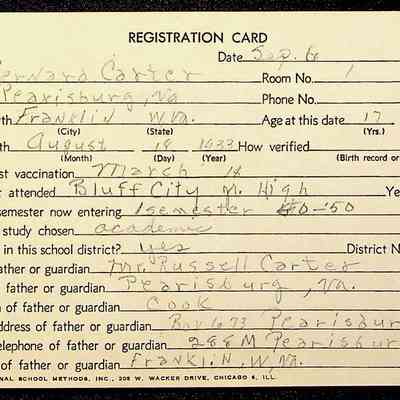 REGISTRATION CARD
Date Sep. 6
ernard Carter Room No. 1
Pearisburg, Va Phone No.
th Franklin W.Va. Age at this date 17
(City) (State) (Yrs.)
th August 18 1633 How verified
(Month) (Day) (Year) (Birth record or
st vaccination March 14
t attended Bluff City Jr. High Ye
semester now entering 1 semester -50
study chosen academic
in this school district? yes District N
ather or guardian Mr. Russell Carter
father or guardian Pearisburg, Va.
n of father or guardian Cook
ddress of father or guardian Box 1673 Pearisbur
elephone of father or guardian 288M Pearisbur
of father or guardian Franklin, W.Va.
NAL SCHOOL METHODS, INC., 308 W. WACKER DRIVE, CHICAGO 6, ILL.